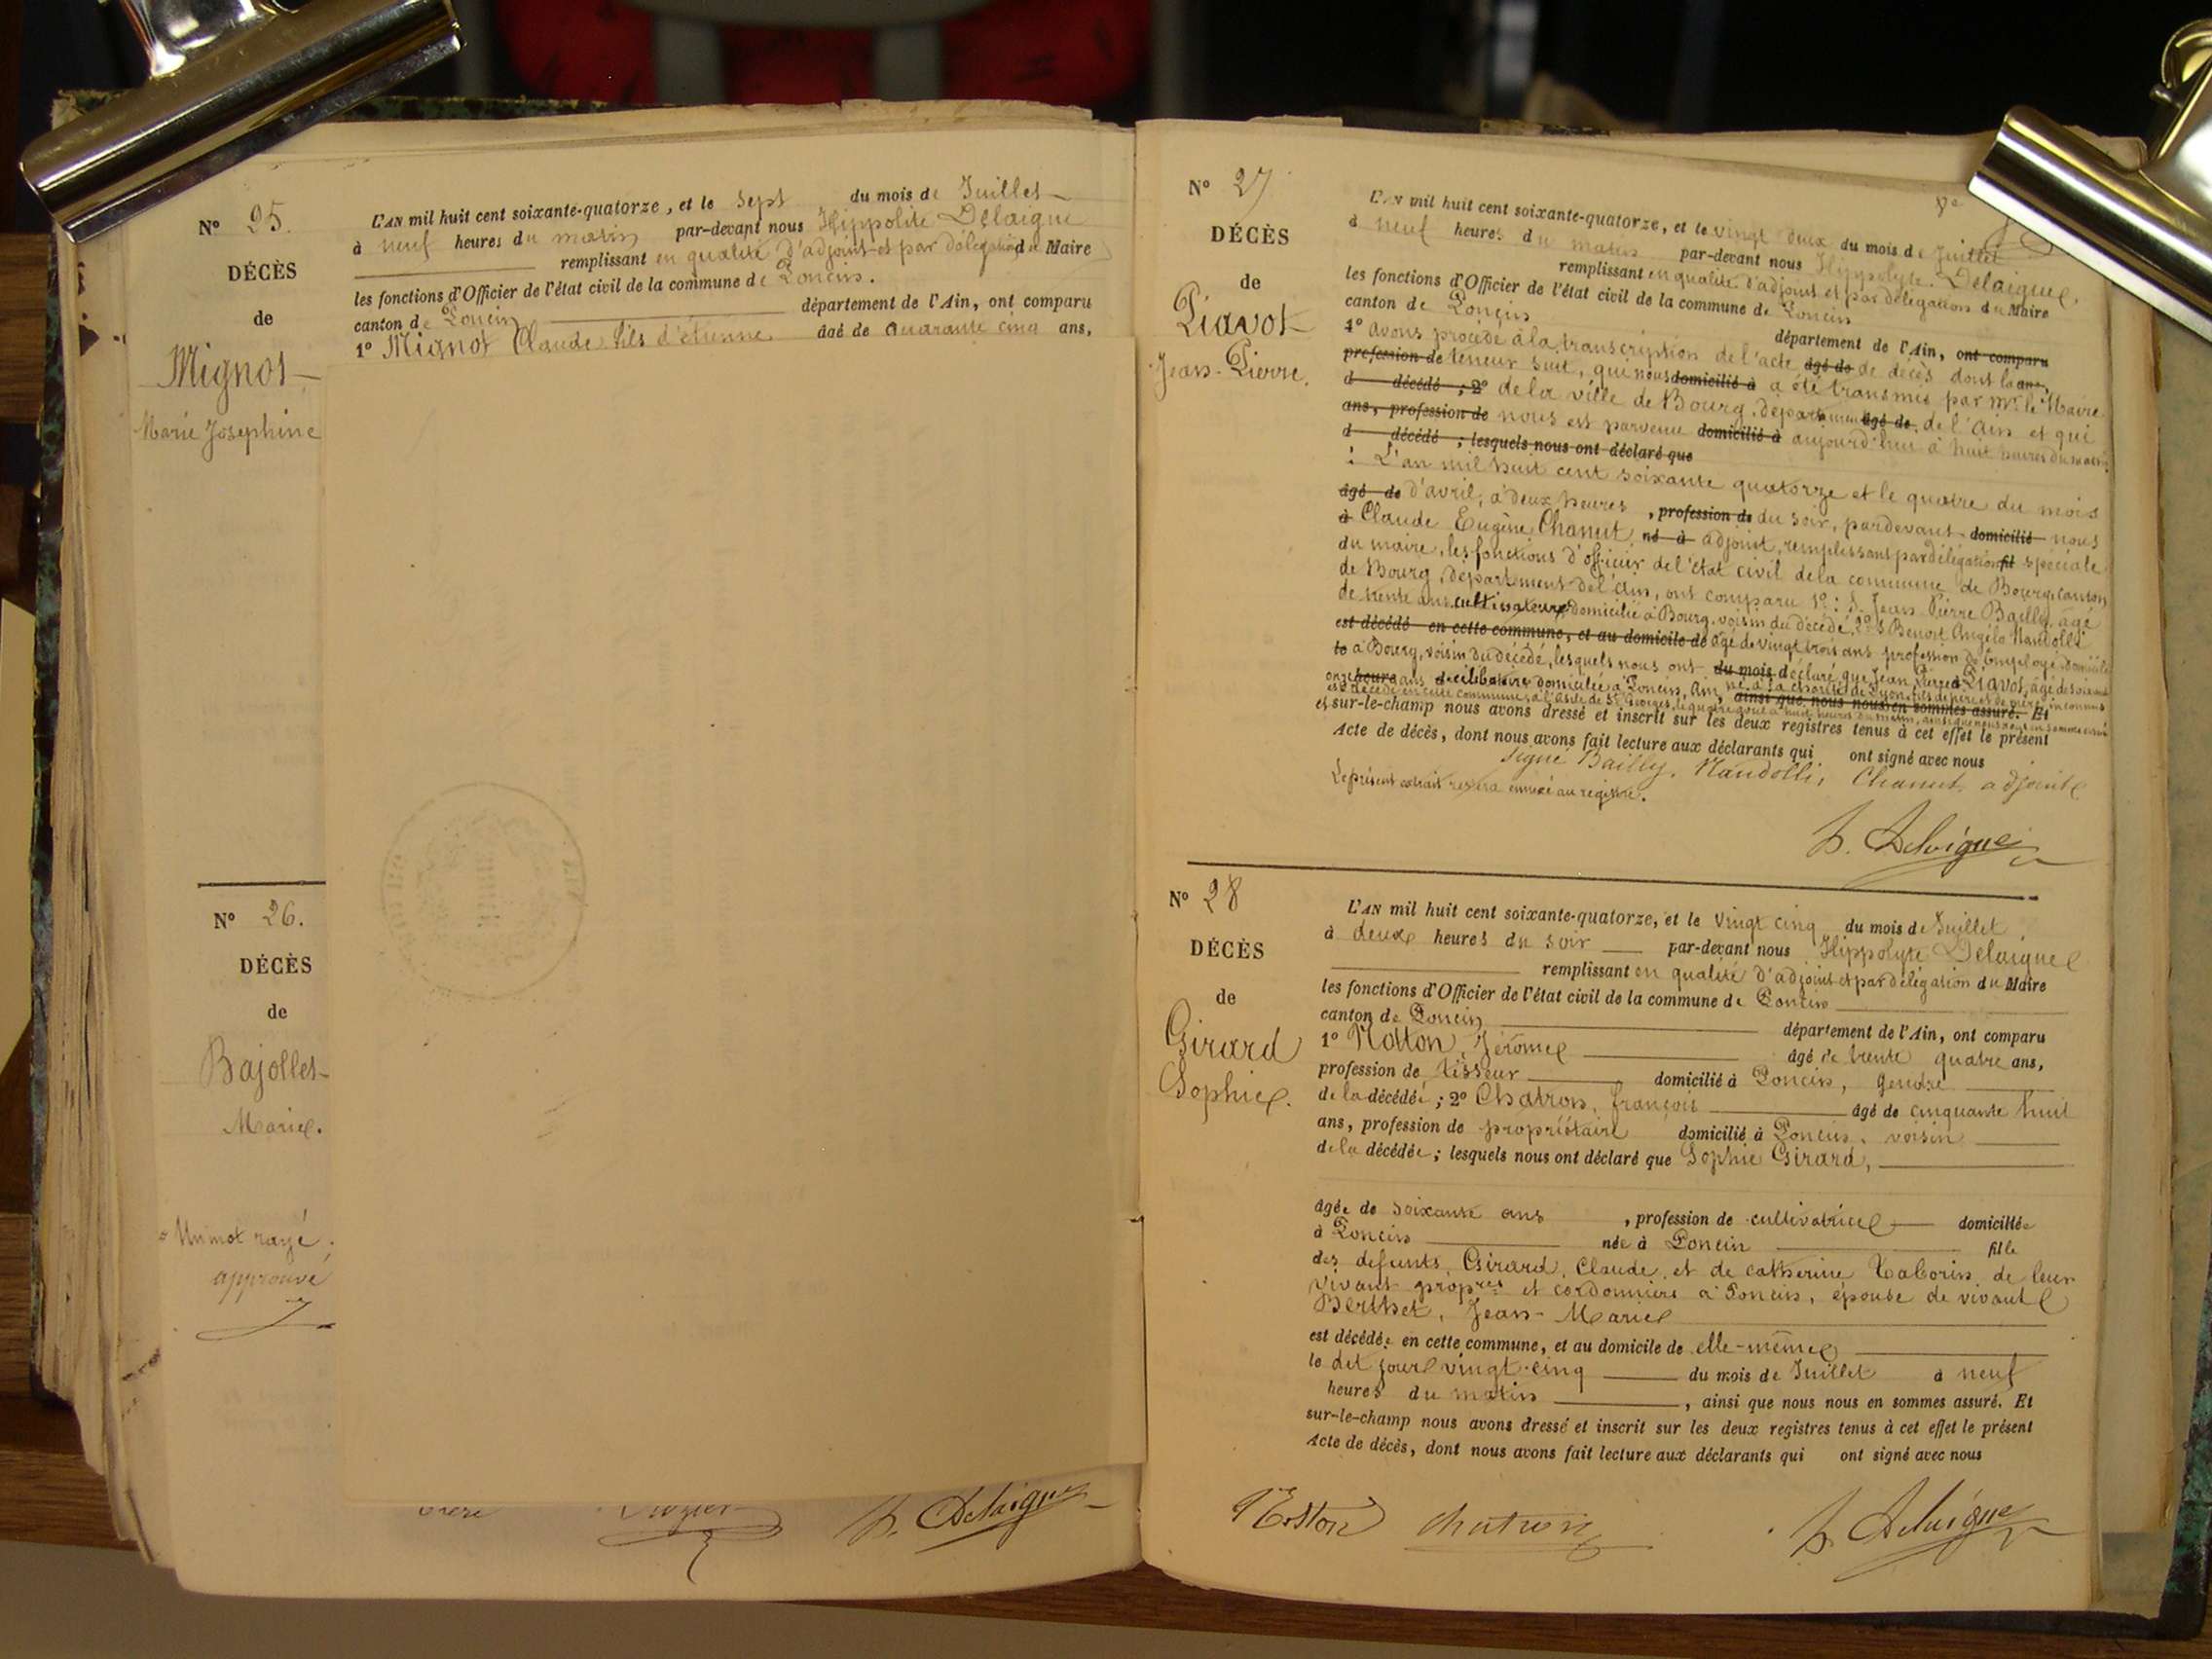 N° 25.
DÉCÈS
de
Mignot
Marie Josephine
L'AN mil huit cent soixante-quatorze, et le sept du mois de Juillet
à neuf heures du matin par-devant nous Hippolite Delaigue
remplissant en qualité d'adjoint et par délégation du Maire
les fonctions d'Officier de l'état civil de la commune de Poncin.
canton de Poncin département de l'Ain, ont comparu
1° Mignot Claude fils d'étienne âgé de quarante cinq ans,
N° 26.
DÉCÈS
de
Bajollet
Marie.
Un mot rayé
approuvé
h. Delaigue
N° 27
DÉCÈS
de
Piavot
Jean-Pierre.
L'AN mil huit cent soixante-quatorze, et le vingt deux du mois de Juillet
à neuf heures du matin par-devant nous Hippolyte Delaigue,
remplissant en qualité d'adjoint et par délégation du Maire
les fonctions d'Officier de l'état civil de la commune de Poncin
canton de Poncin département de l'Ain, ont comparu
1° avons procédé à la transcription de l'acte âgé de de décès dont la ans,
profession de teneur suit, qui nous domicilié à a été transmis par Mr. le Maire
d décédé ; 2° de la ville de Bourg, département âgé de de l'ain et qui
ans, profession de nous est parvenu domicilié à aujourd'hui à huit heures du matin
d décédé ; lesquels nous ont déclaré que
: L'an mil huit cent soixante quatorze et le quatre du mois
âgé de d'avril, à deux heures , profession de du soir, pardevant domicilié nous
à Claude Eugène Chanut né à adjoint, remplissant par délégation fil spéciale
du maire, les fonctions d'officier de l'état civil de la commune de Bourg, canton
de Bourg, département de l'ain, ont comparu 1°: S. Jean Pierre Bailly, âgé
de trente ans cultivateur domicilié à Bourg, voisin du décédé, 2° S Benoit Angélo Nandolli
est décédé en cette commune, et au domicile de âgé de vingt trois ans profession de employé domicilié
le à Bourg, voisin du décédé, lesquels nous ont du mois déclaré que Jean Pierre à Piavot, âgé de soixante
onze heure ans célibataire domicilié à Poncin, Ain, né à la charité de Lyon, fils de père et de mère inconnus ainsi que nous nous en sommes assuré. Et
est décédé en cette commune, à l'asile de St Georges, le quatre à huit heures du matin, ainsi que nous nous en sommes assuré
et sur-le-champ nous avons dressé et inscrit sur les deux registres tenus à cet effet le présent
Acte de décès, dont nous avons fait lecture aux déclarants qui ont signé avec nous
Signé Bailly, Nandolli, Chanut, adjoint
Le présent extrait restera annexé au registre.
h. Delaigue
N° 28
DÉCÈS
de
Girard
Sophie.
L'AN mil huit cent soixante-quatorze, et le vingt cinq du mois de Juillet
à deux heures du soir par-devant nous Hippolyte Delaigue
remplissant en qualité d'adjoint et par délégation du Maire
les fonctions d'Officier de l'état civil de la commune de Poncin
canton de Poncin département de l'Ain, ont comparu
1° Notton, Jérome âgé de trente quatre ans,
profession de tisseur domicilié à Poncin, gendre
de la décédée ; 2° Chatron, françois âgé de cinquante huit
ans, profession de propriétaire domicilié à Poncin, voisin
de la décédée ; lesquels nous ont déclaré que Sophie Girard,
âgée de soixante ans , profession de cultivatrice domiciliée
à Poncin née à Poncin fille
des defunts Girard, Claude, et de catherine Taborin, de leur
vivant propres et cordonnière à Poncin, épouse de vivant
Berthet, Jean-Marie
est décédée en cette commune, et au domicile de elle-même
le dit jour vingt-cinq du mois de Juillet à neuf
heures du matin , ainsi que nous nous en sommes assuré. Et
sur-le-champ nous avons dressé et inscrit sur les deux registres tenus à cet effet le présent
Acte de décès, dont nous avons fait lecture aux déclarants qui ont signé avec nous
Notton chatron h. Delaigue